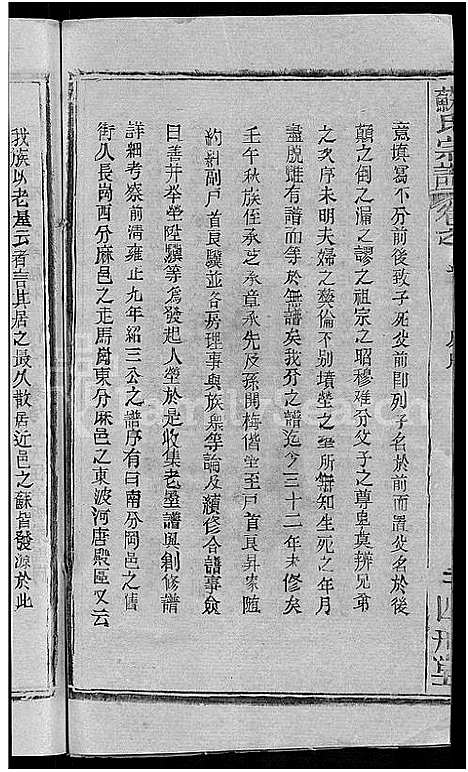 蘇氏宗譜
卷之
意填寫不分前後致子死父前即列子名於前而置父名於後
顛之倒之漏之謬之祖宗之昭穆難分父子之尊卑莫辨兄弟
之次序未明夫婦之獒倫不别墳塋之坐所無知生死之年月
盡脫雖有譜而等於無譜矣我分之譜迄今三十二年未修矣
壬午秋族侄承芝承章承先及孫開梅偕瑩至戶首良昇家隨
約剿副戶首良驥並各房理事與族衆等論及續修合譜事僉
曰善并舉瑩陞驥等為發起人瑩於是收集老墨譜與創修譜
詳細考察前清雍正九年紹三公之譜序有曰南分岡邑之舊
街人長崗西分麻邑之走馬崗東分麻邑之東波河唐殿區又云
我族以老墨云者言其居之最久散居近邑之蘇皆發源於此